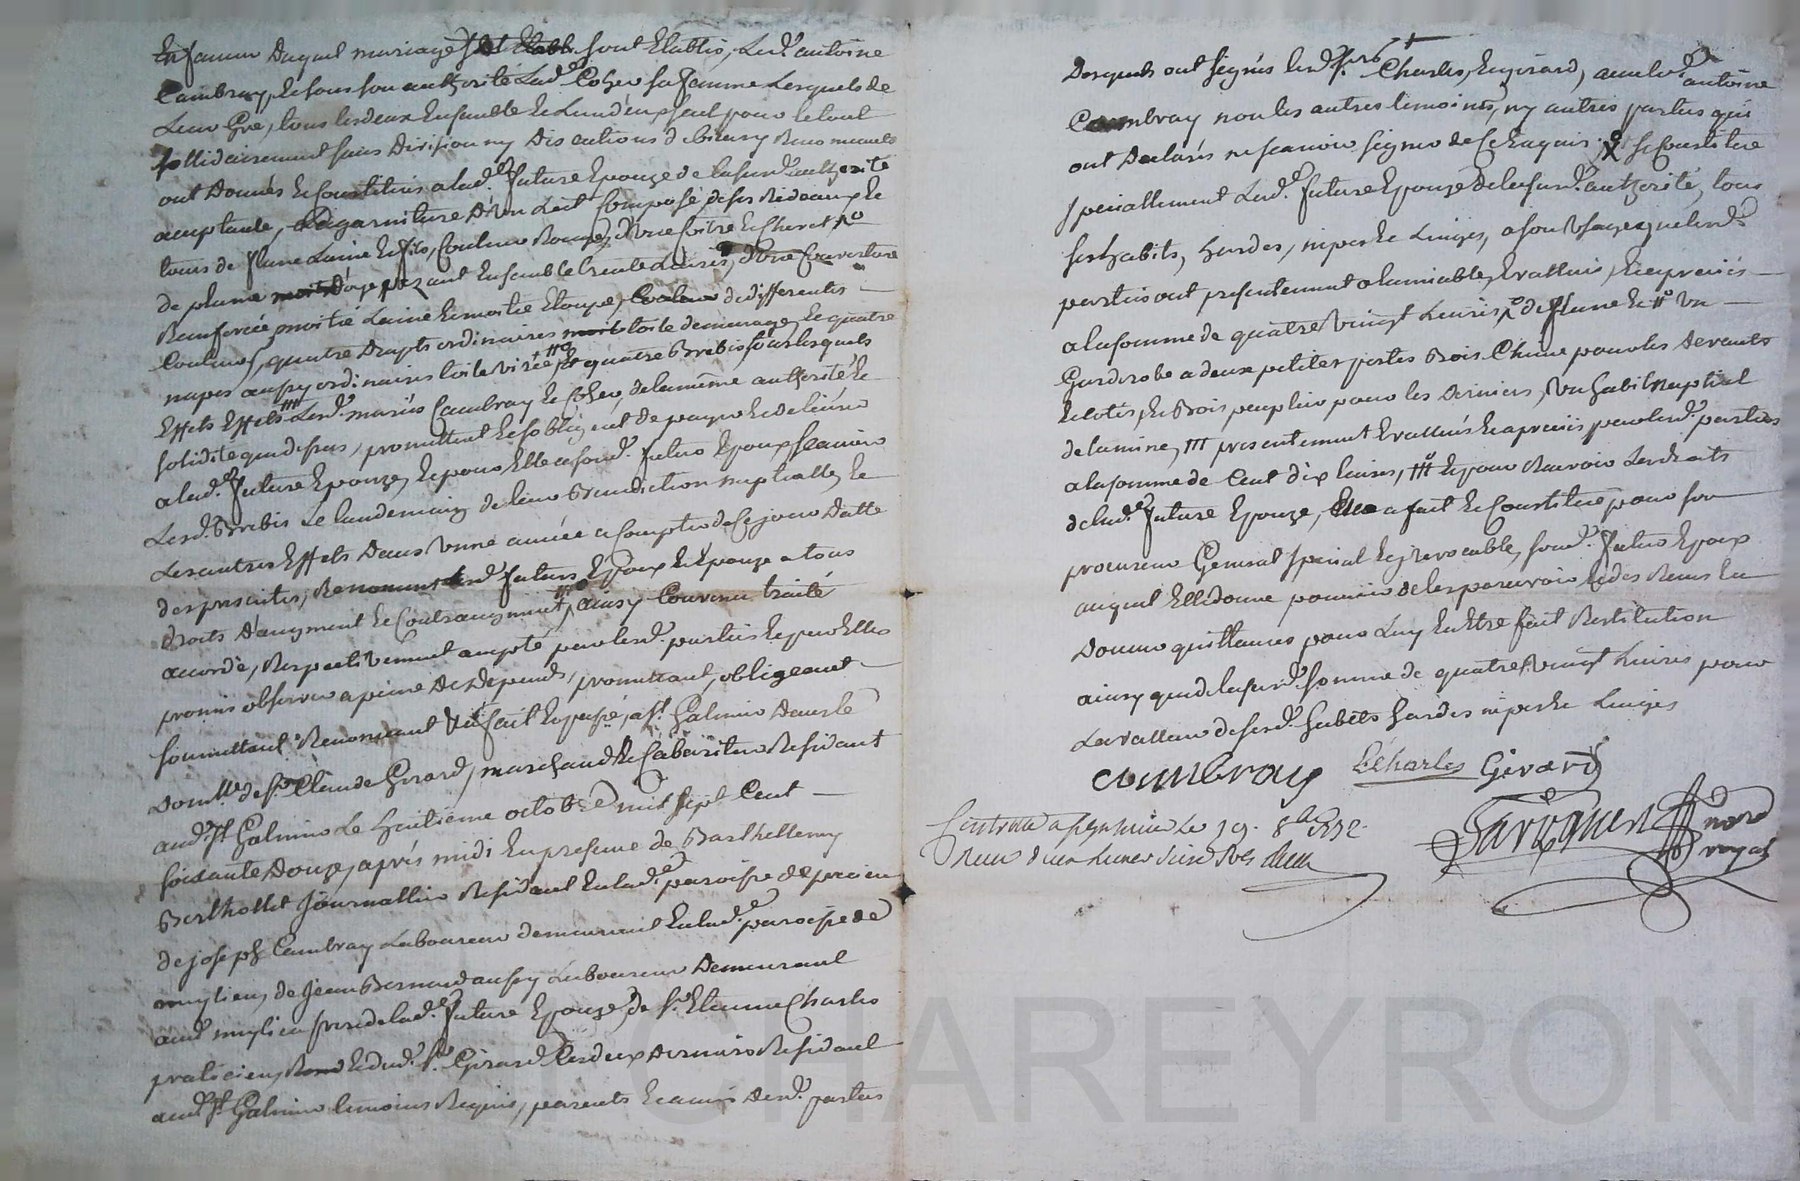 En faveur duquel mariage sont Etablis, Led. antoine
Cambray, Et sous son authorité Lad. Coher sa femme Lesquels de
Leur Gré, tous les deux Ensemble Et Lun d'eux seul pour le tout
sollidairement sans Division ny Discutions d
ont Donnés Et Constitués a lad. future Epouze de la surd. authorité
acceptante, La garniture d'un Lict Composé de ses Rideaux Et
tours de Laine Et fils, Couleur Rouge, d'une Coitre Et Chevet
de plume pezant Ensemble trente Livres, d'une Couverture
Renforcée moitié Laine Et moitié Etoupe, de differentes
Couleurs, quatre Draps ordinaires toile de menage, Et quatre
napes aussy ordinaires toile et quatre Brebis, tous lesquels
Effets Lesd. mariés Cambray Et Coher, de la même authorité Et
solidité que dessus, promettent Et s'obligent de payer Et delivrer
a lad. future Epouze, Et pour Elle a sond. futur Epoux scavoir
Lesd. Brebis Le landemain de leur Benediction nuptialle, Et
Les autres Effets Dans Une année a Compter de Ce jour Datte
des presentes, Renoncent Lesd. futurs Epoux Et Epouze a tous
droits d'augment Et Contraugment, ainsy Convenu traité
accordé, Respectivement accepté par lesd. parties Et par Elles
promis observer a peine de Depends, promettant, obligeant
soumettant Renonçant &. fait Et passé, a St. Galmier Dans le
Domlle. de Sr. Claude Girard, marchand Et Cabaretier Residant
aud. St. Galmier Le huitieme octobre mil sept Cent
soixante Douze, après midi En presence de Barthellemy
Berthollet Journallier Residant En lad. paroisse de
de joseph Cambray Laboureur demeurant En lad. paroisse de
de Jean Bernard aussy Laboureur Demeurant
aud. de lad. future Epouze, de Sr. Etienne Charles
praticien, Et dud. Sr. Girard Les deux Derniers Residant
aud. St. Galmier temoins Requis, parents Et amis Desd. parties
Desquels ont signés lesd. Srs. Charles, Et girard, avec led. antoine
Cambray non les autres temoins, ny autres parties qui
ont Declarés ne scavoir signer de Ce Enquis; Et se Constitue
speciallement Lad. future Epouze de la surd. authorité, tous
ses habits, hardes, nipes Et Linges, a son Usage, que lesd.
parties ont presentement a lamiable, Evallués, Et apreciés
a la somme de quatre Vingt Livres Un
Garderobe a deux petites portes Bois Chêne pour les devants
Et Bois peuplier pour les Derniers, Un habit Nuptial
presentement Evallués Et apreciés par lesd. parties
a la somme de Cent dix livres, Et pour Recevoir Les droits
de lad. future Epouze, Elle a fait Et Constitué, pour son
procureur General special Et jrrevocable, sond. futur Epoux
auquel Elle donne pouvoir de les percevoir Et des Reçus En
Donner quittances pour Luy En Etre fait Restitution
ainsy que de la surd. somme de quatre Vingt Livres pour
La valleur de sesd. habits hardes nipes Et Linges
cambray E Charles Girard
Controllé a St Galmier Le 19. 8bre 1772.
Reçu
nore
royal
CHAREYRON